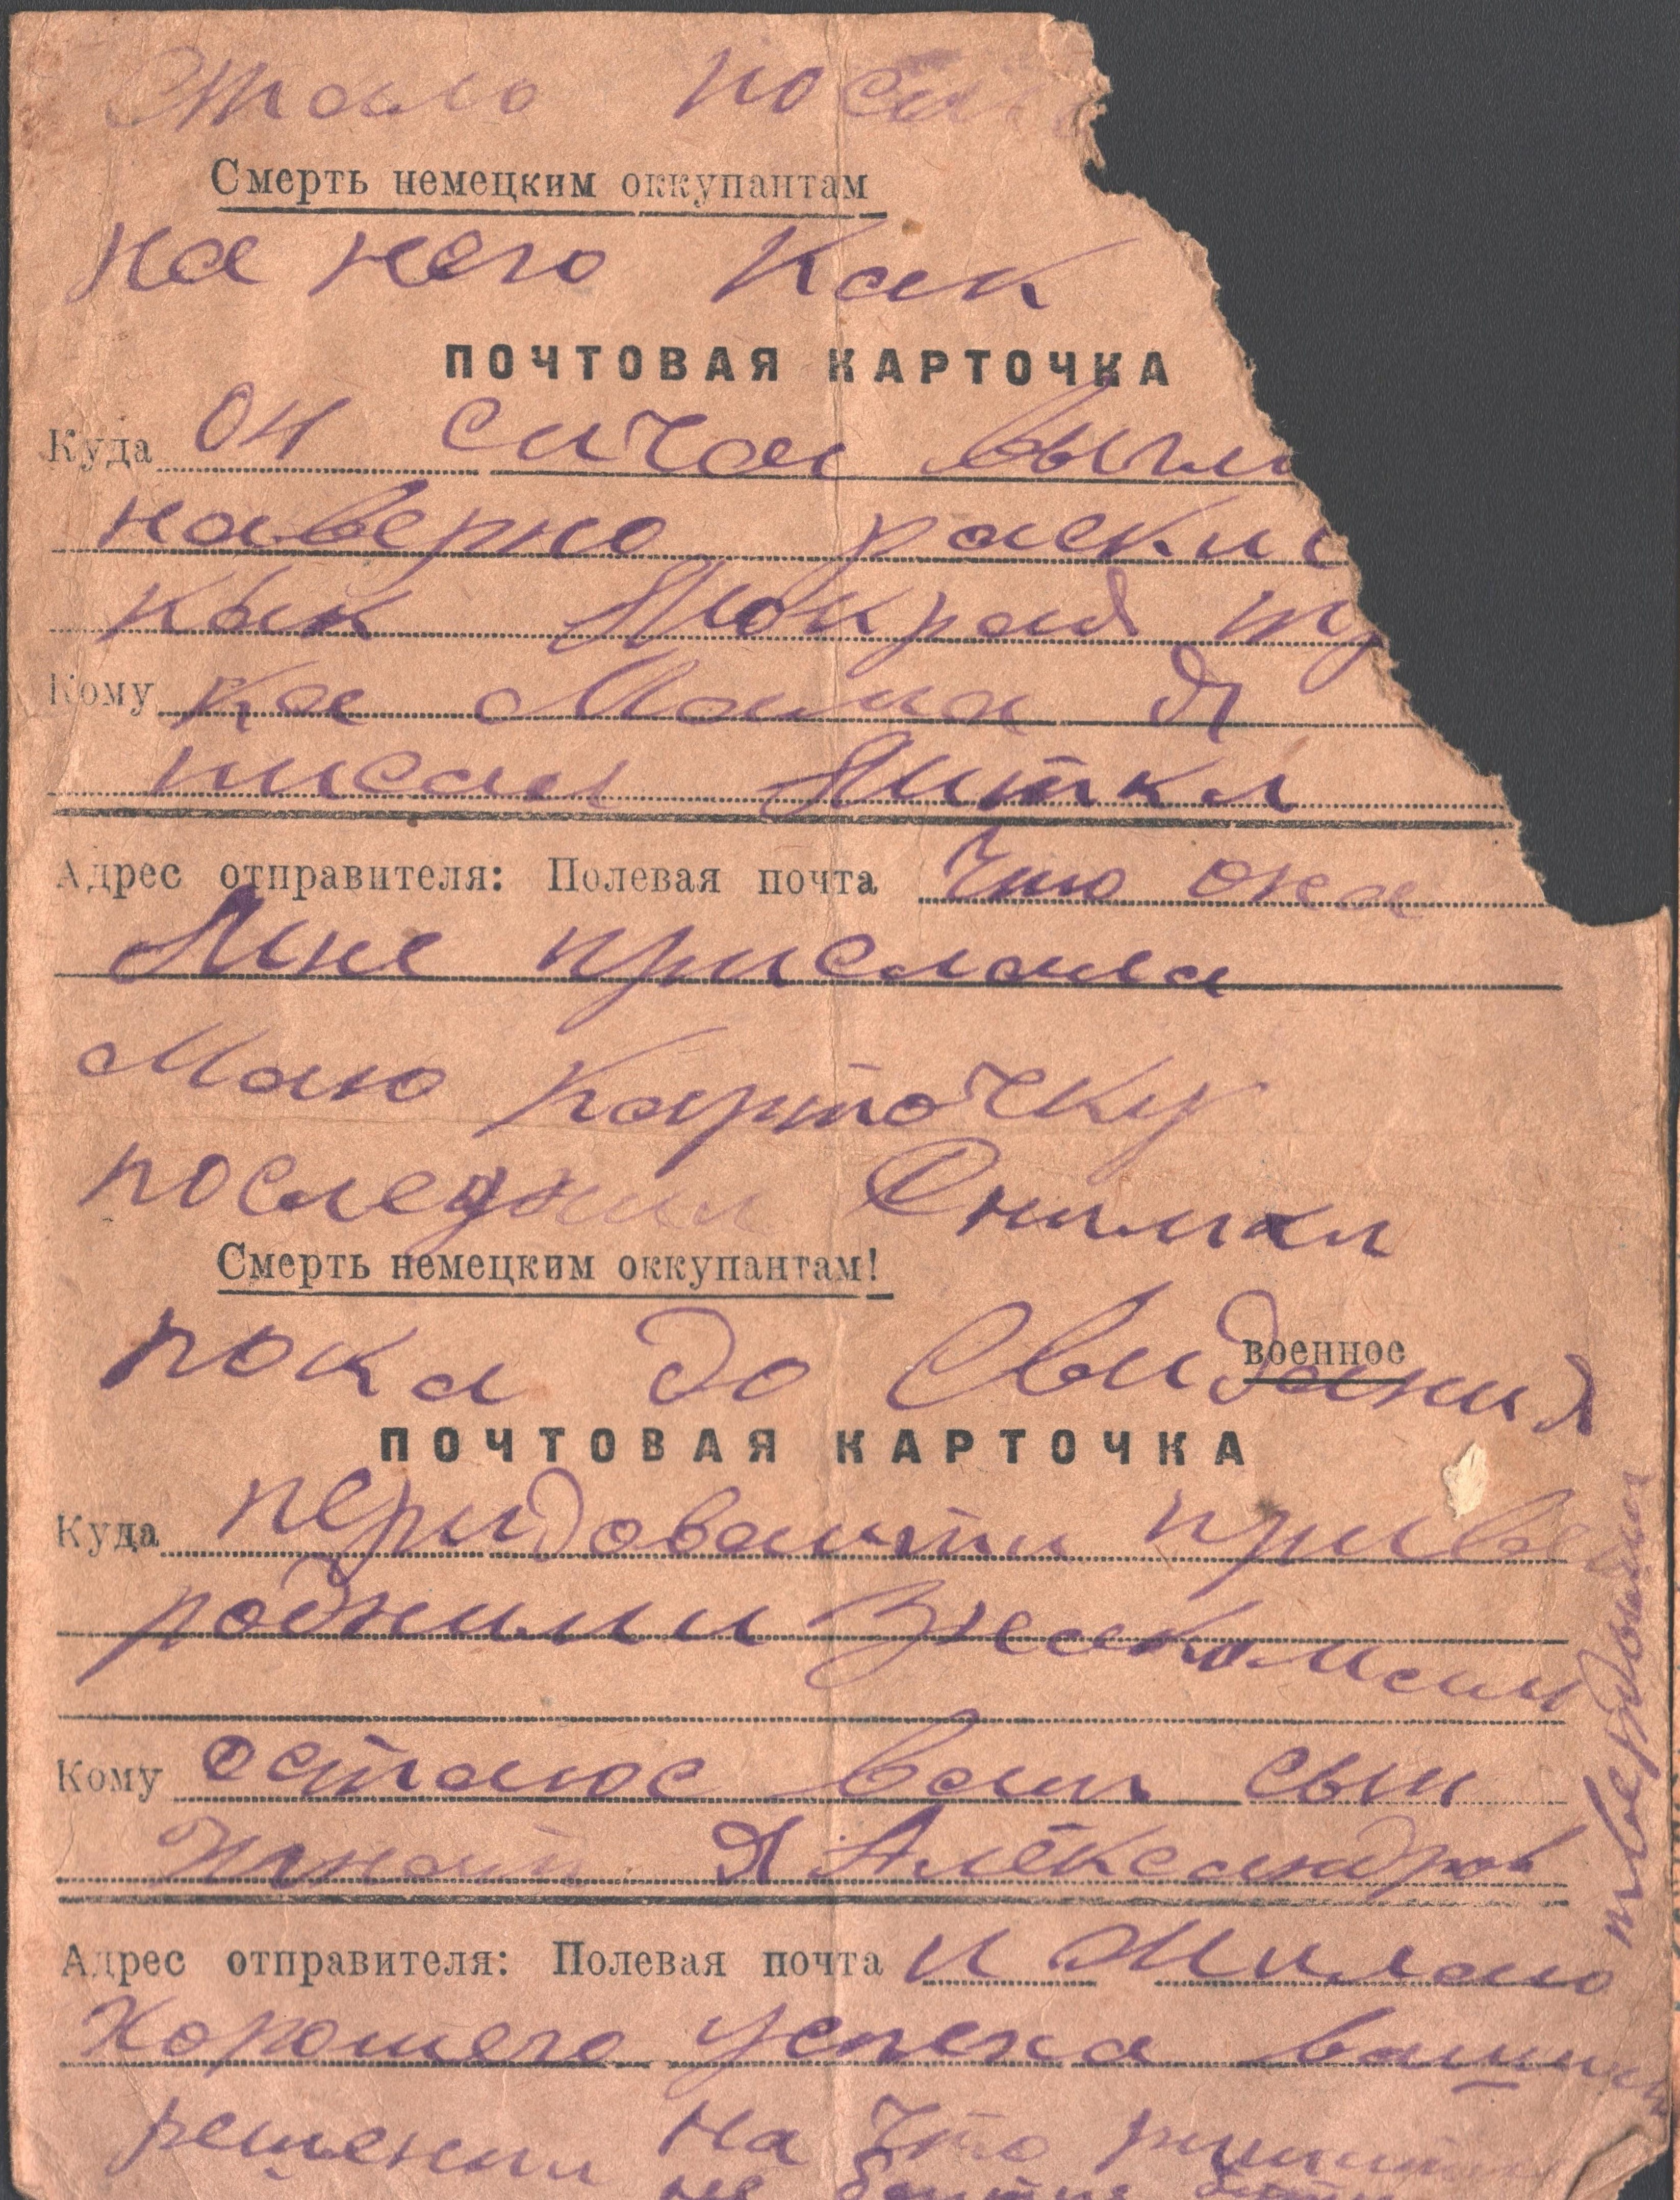 Стало посм
Смерть немецким оккупантам
на него как
ПОЧТОВАЯ КАРТОЧКА
Куда он сичас выгли
наверно раскис
как мокрая ку
Кому ка Мама Я
писал Митки
Адрес отправителя: Полевая почта Что она
Мне прислала
Маю карточку
последнии Снимки
Смерть немецким оккупантам!
пока до Свидания
военное
ПОЧТОВАЯ КАРТОЧКА
Куда перидовайти приве
родними Знакомеми
Кому остаюс ваш сын
Игнат Я Александров
Адрес отправителя: Полевая почта и Жилаю
Хорошего успеха вашим
решении на что ришити
не
твердоми